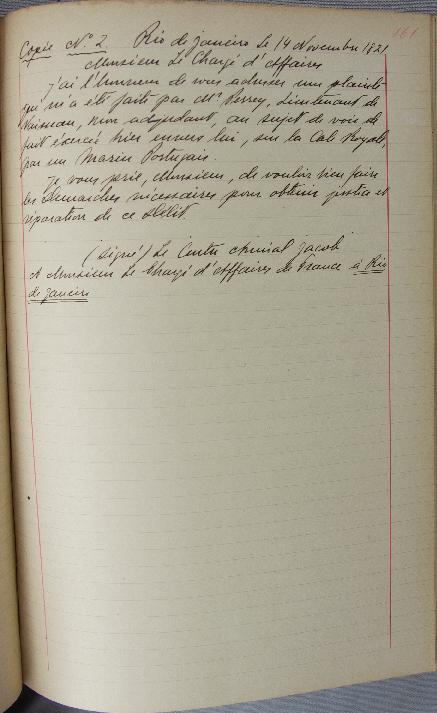 161
Copie N.º 2. Rio de janeiro le 14 Novembre 1821
Monsieur Le Chargé d'Affaires
j'ai l'honneur de vous adresser une plainte
qui m'a eté faite par Mr. Perrey, Lieutenant de
Vaisseau, mon adjudant, au sujet de voie de
fait éxercée hier envers lui, sur la Cale Royale,
par un Marin Portugais.
Je vous prie, Monsieur, de vouloir bien faire
les demarches nécessaires pour obtenir justice et
réparation de ce Délit.
(signé) Le Contre Amiral Jacob
A Monsieur Le Chargé d'Affaires de France à Rio
de janeiro